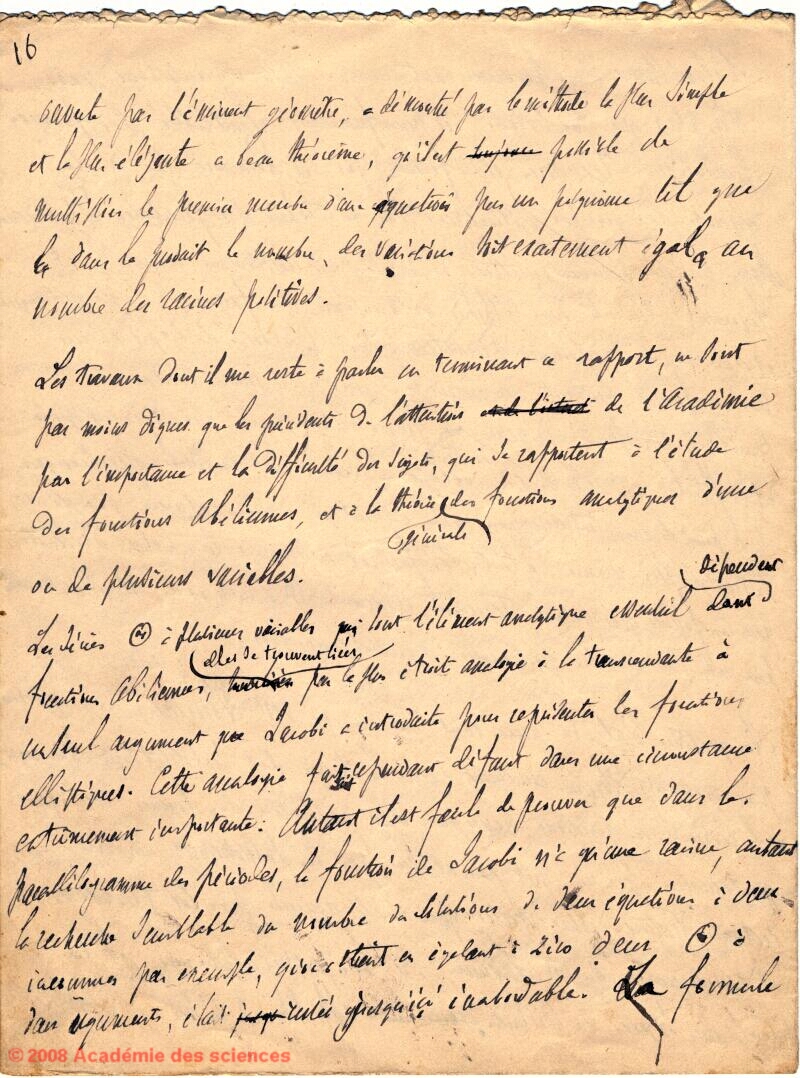 16
ouverte par l'éminent géomètre, a démontré par la méthode la plus simple
et la plus élégante ce beau théorème, qu'il est toujours possible de
multiplier le premier membre d'une équation par un polynome tel que
dans le produit le nombre des variations soit exactement égal au
nombre des racines positives.
Les travaux dont il me reste à parler en terminant ce rapport, ne sont
pas moins dignes que les précédents de l'attention et de l'intérêt de l'Académie
par l'importance et la difficulté des sujets, qui se rapportent à l'étude
des fonctions Abéliennes, et à la théorie des fonctions analytiques d'une
générale
ou de plusieurs variables.
dépendent
Les séries Θ à plusieurs variables qui sont l'élément analytique essentiel dont
elles se trouvent liées
fonctions Abéliennes, par la plus étroite analogie à la transcendante à
un seul argument que Jacobi a introduite pour représenter les fonctions
elliptiques. Cette analogie fait cependant défaut dans une circonstance
extrêmement importante: Autant il est facile de prouver que dans le
parallélogramme des périodes, la fonction de Jacobi n'a qu'une racine, autant
la recherche semblable du nombre des solutions de deux équations à deux
inconnues par exemple, qu'on obtient en égalant à zéro deux Θ à
deux arguments, était restée jusqu'ici inabordable. La formule
© 2008 Académie des sciences